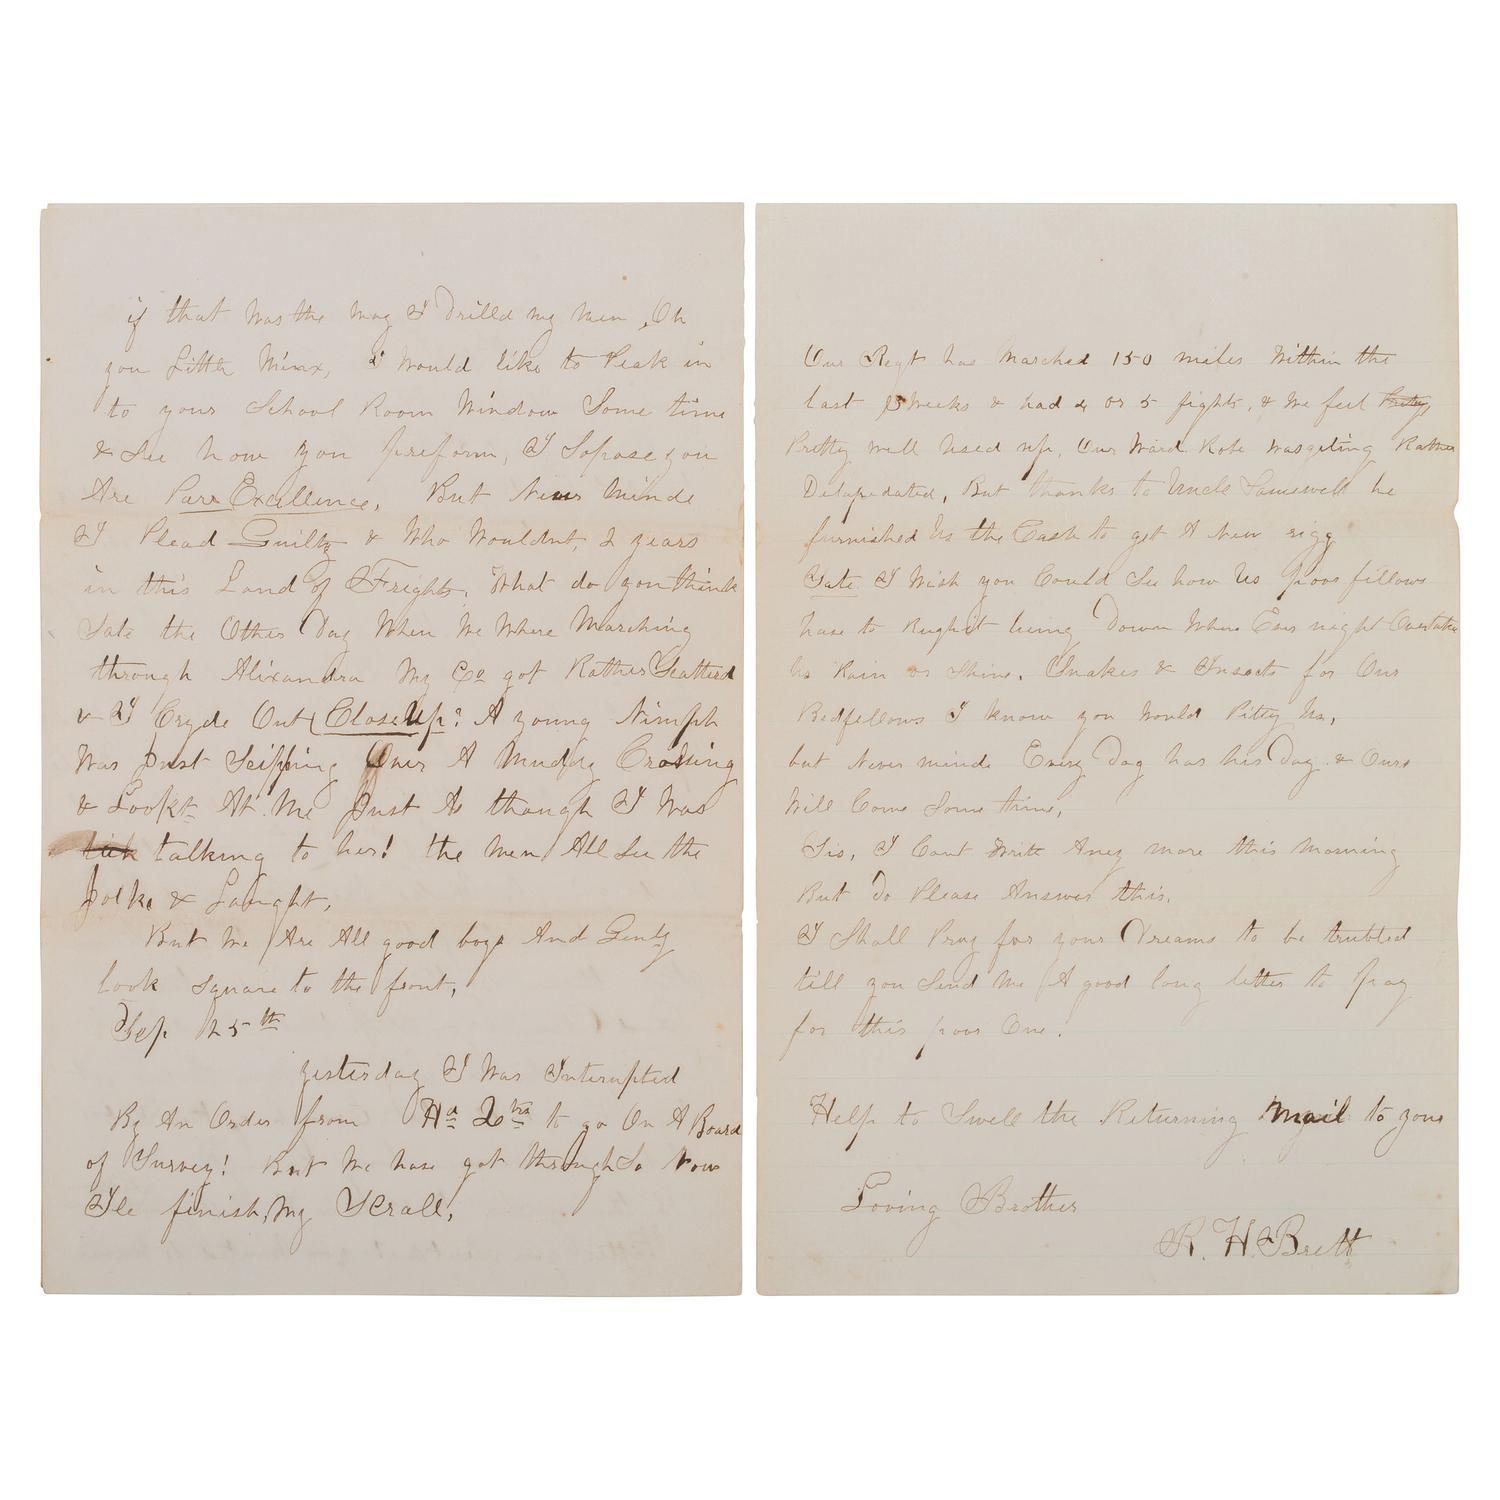 if that was the way I Drilld my men, Oh
you Little Minx, I would like to Peak in
to your School Room Window Some time
& See how you preform, I Sopose you
Are Parr Excellence, But Never Minde
I Plead Guilty & Who Wouldnt, 2 years
in this Land of Frights. What do you think
Sate the Other Day When We Where Marching
through Alixandra My Co got Rather Scatterd
& I Cryde Out (Close Up? A young Nimph
Was Just Scipping Over A Muddy Crossing
& Lookt At Me Just As though I Was
talking to her! the Men All See the
Jolke & Laught,
But We Are All good boys And Genly
look square to the front,
Sep 25th
yesterday I Was Interupted
By An Order from Hd Qtrs to go On A Board
of Survey! But We have got through So Now
Ile finish, My Scrall,
Our Regt has Marched 150 miles Within the
last 3 weeks & had 4 or 5 fights, & We feel Pretty
Pretty well Used up, Our Ward Robe was geting Rather
Delapedated, But thanks to Uncle Samewell he
furnished Us the Cash to get A New rigg
Sate I Wish you Could See how Us poor fellows
have to Rughit living Down Where Ever night Overtake
Us Rain or Shine, Snakes & Insects for Our
Bedfellows I know you Would Pitty Us,
but Never minde Every Day has his Day & Ours
Will Come Some time,
Sis, I Cant Write Aney more this Morning
But Do Please Answer this,
I Shall Pray for your Dreams to be trubled
till you Send Me A good long letter to pay
for this poor One.
Help to Swell the Returning Mail to your
Loving Brother
R. H. Brett